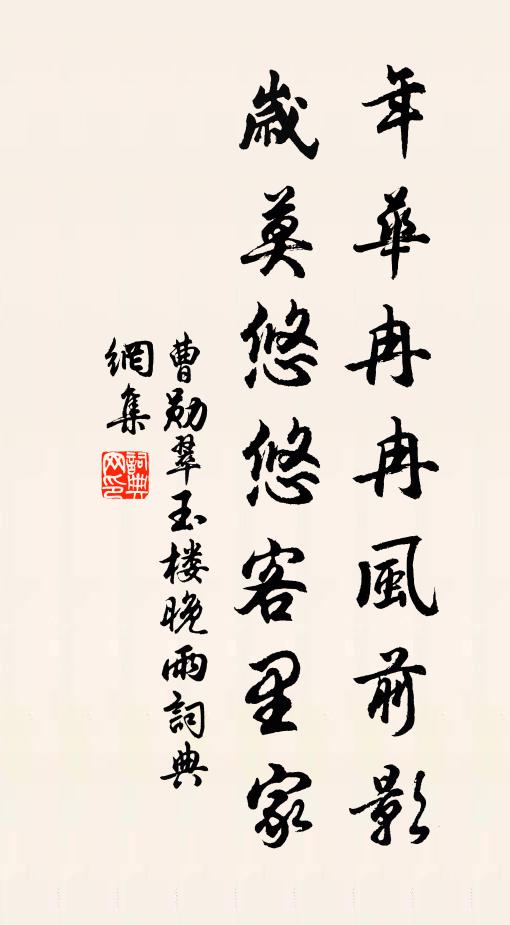 年華冉冉風前影
歲莫悠悠客里家
曹勛翠玉楼晚雨詞典
網集
詞典網印